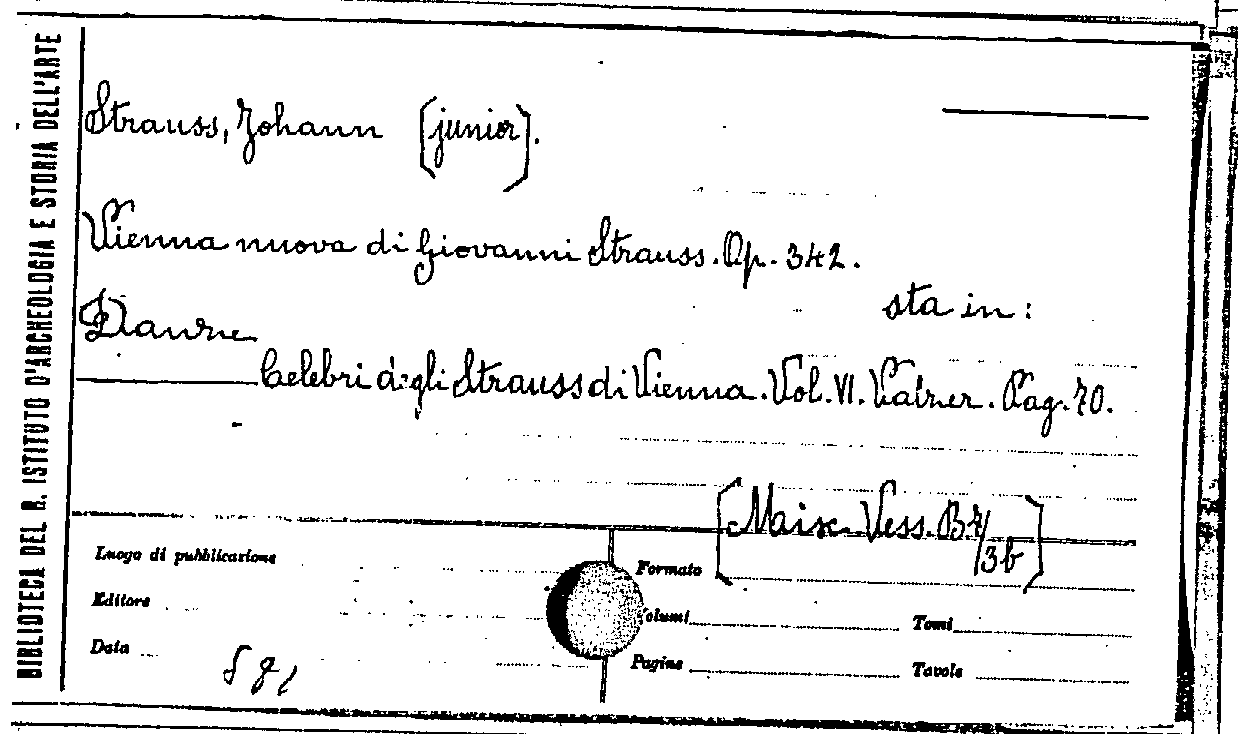 BIBLIOTECA DEL R. ISTITUTO D'ARCHEOLOGIA E STORIA DELL'ARTE
Strauss, Johann [junior].
Vienna nuova di Giovanni Strauss. Op. 342.
sta in:
Danze
Celebri degli Strauss di Vienna. Vol. VI. Valzer. Pag. 70.
[Maise Vess. B
3b]
Luogo di pubblicazione
Formato
Editore
Volumi
Tomi
Data
Pagine
Tavole